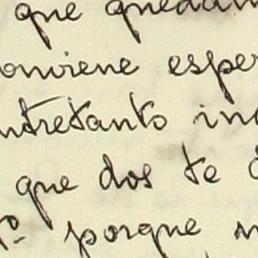 que quedan
onviene esper
ntretanto in
que dos te
1º porque